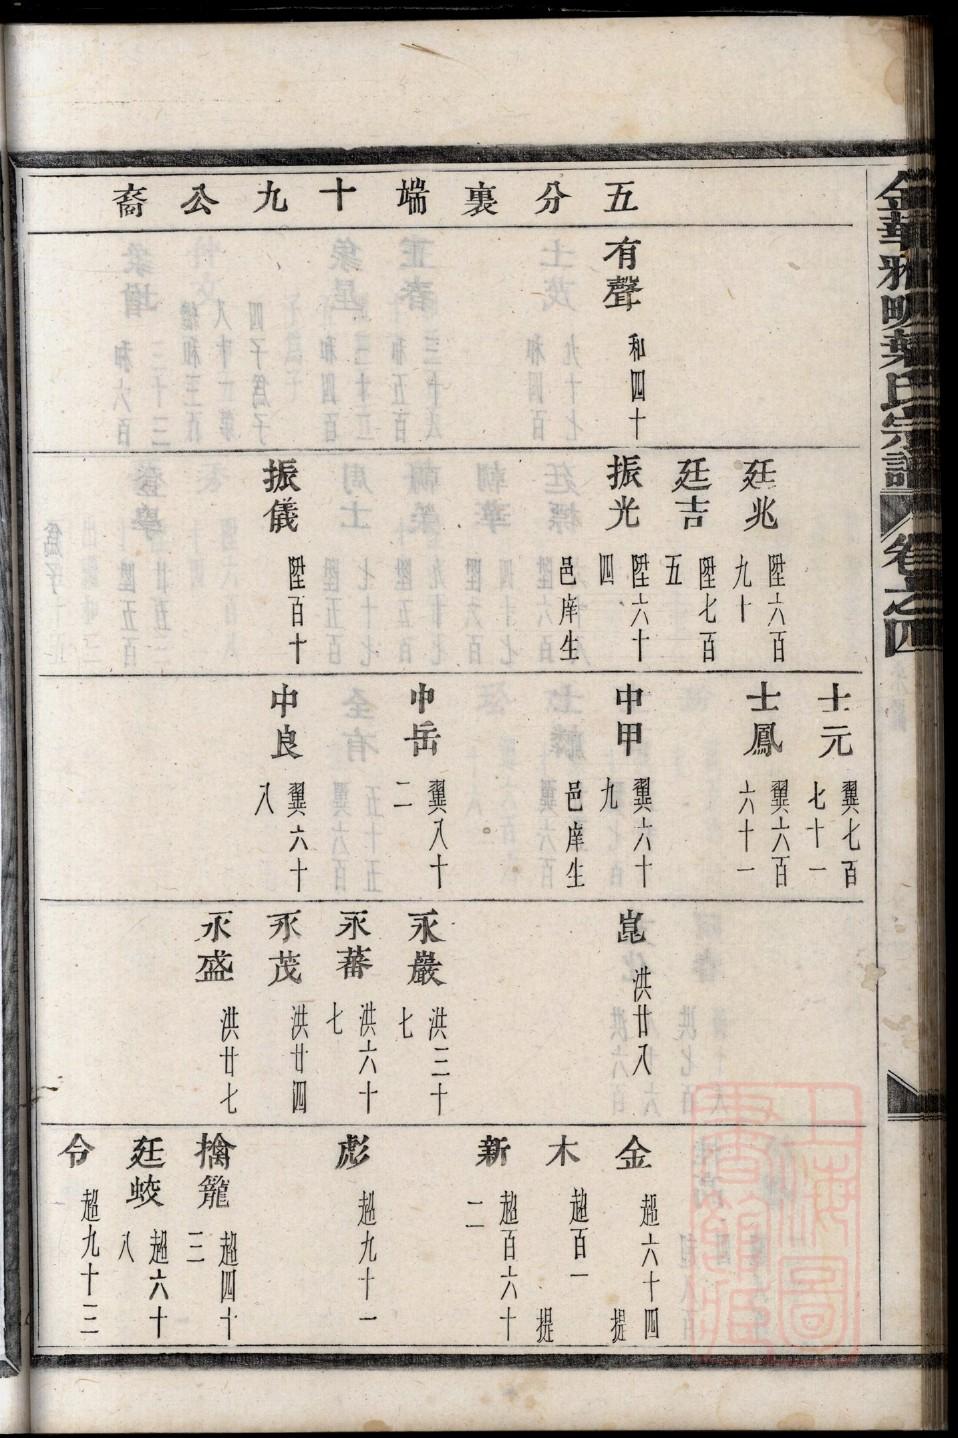 金華雅畈葉氏宗譜 卷之四
五分裏端十九公裔
有聲 和四十
廷兆 陞六百九十
廷吉 陞七百五
振光 陞六十四 邑庠生
振儀 陞百十
士元 翼七百七十一
士鳳 翼六百六十一
中甲 翼六十九 邑庠生
中岳 翼八十二
中良 翼六十八
崑 洪廿八
永嚴 洪三十七
永蕃 洪六十七
永茂 洪廿四
永盛 洪廿七
金 超六十四 提
木 超百一 提
新 超百六十二
彪 超九十一
擒龍 超四十三
廷蛟 超六十八
令 超九十三
上海圖書館藏